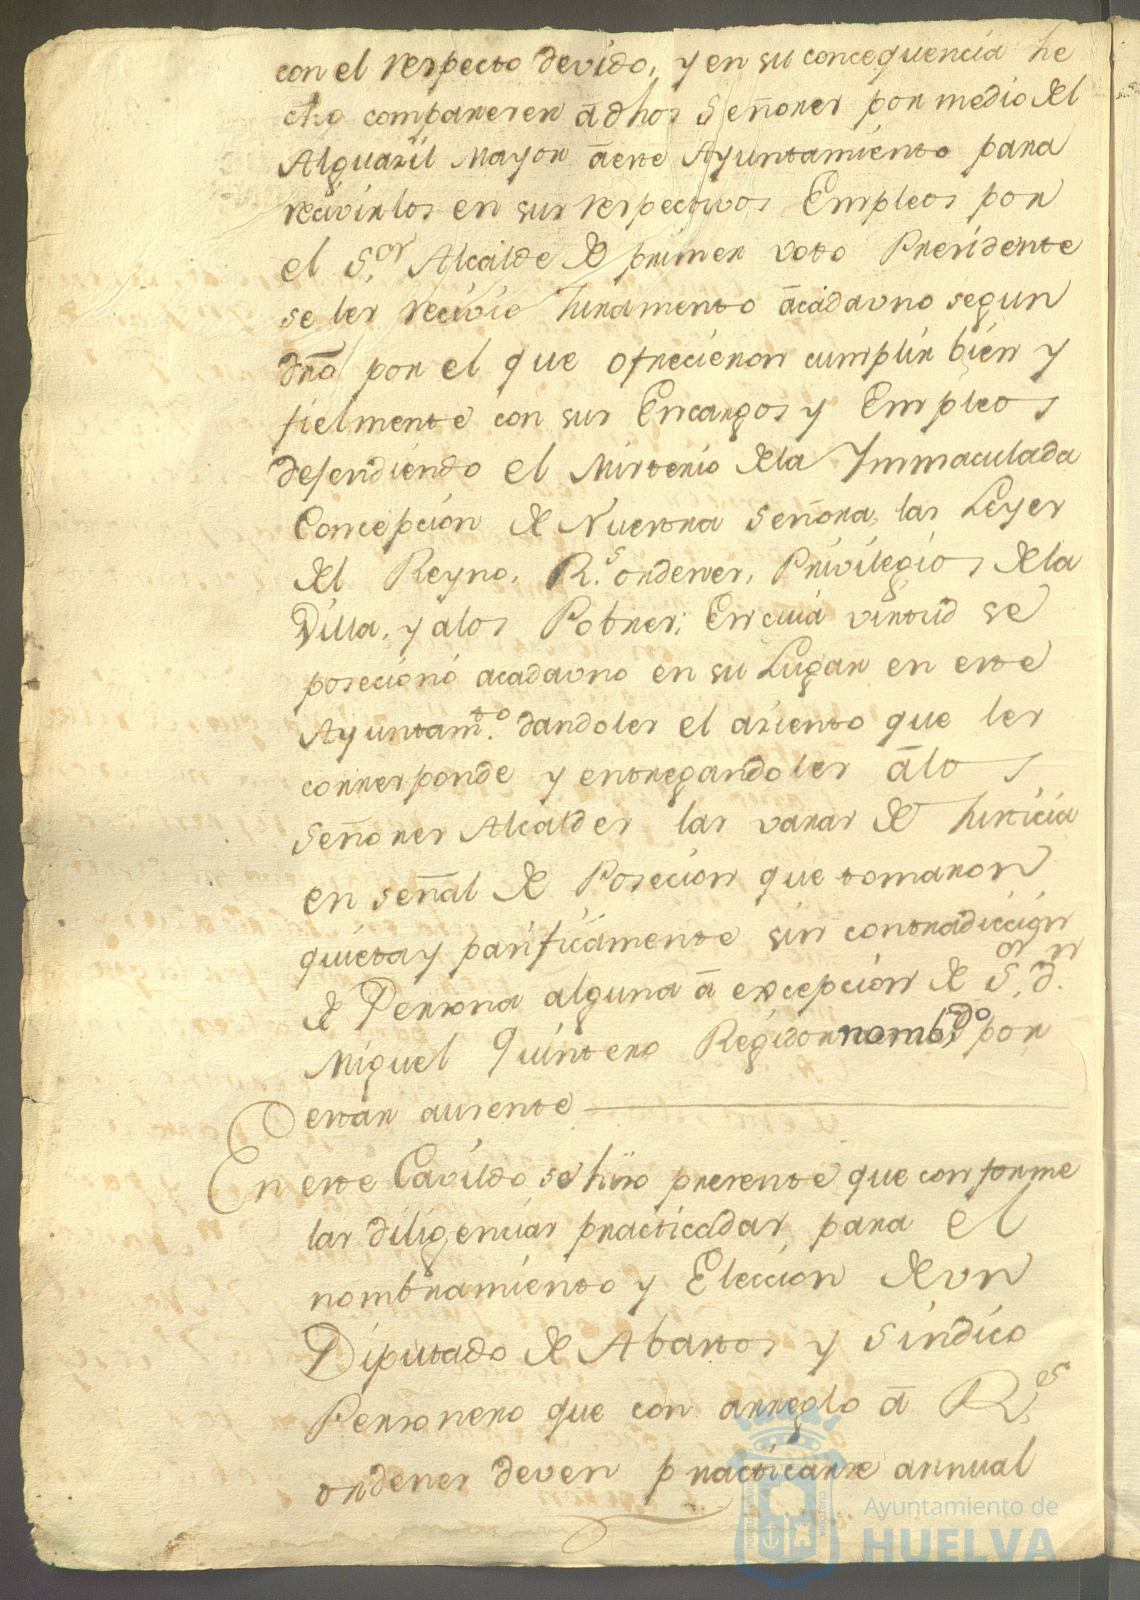 con el respecto devido, y en su concequencia he
cho compareren ā dhos Señores por medio del
Alguazil Mayor ā este Ayuntamiento para
recivirlos en sus respectivos Empleos por
el S.or Alcalde de primer voto Presidente
se les recivio Juramento ācadauno segun
dro por el que ofrecieron cumplir bien y
fielmente con sus Encargos y Empleos
defendiendo el Misterio dela Immaculada
Concepcion de Nuestra Señora, las Leyes
del Reyno, R.s ordenes, Privilegios dela
Villa, y alos Pobres; En cuia virtud se
posecionó acadauno en su Lugar en este
Ayuntam.to dandoles el asiento que les
corresponde y entregandoles ālos
Señores Alcaldes las varas de Justicia
en señal de Posecion que tomaron
quieta y pasificamente sin contradiccion
de Persona alguna ā excepcion de S.or d.n
Miguel Quintero Regidor nomb.do por
estar ausente
En este Cavildo se hizo presente que conforme
las diligencias practicadas, para el
nombramiento y Eleccion de un
Diputado de Abastos y Sindico
Personero que con arreglo ā R.es
ordenes deven practicarse annual
Ayuntamiento de
HUELVA